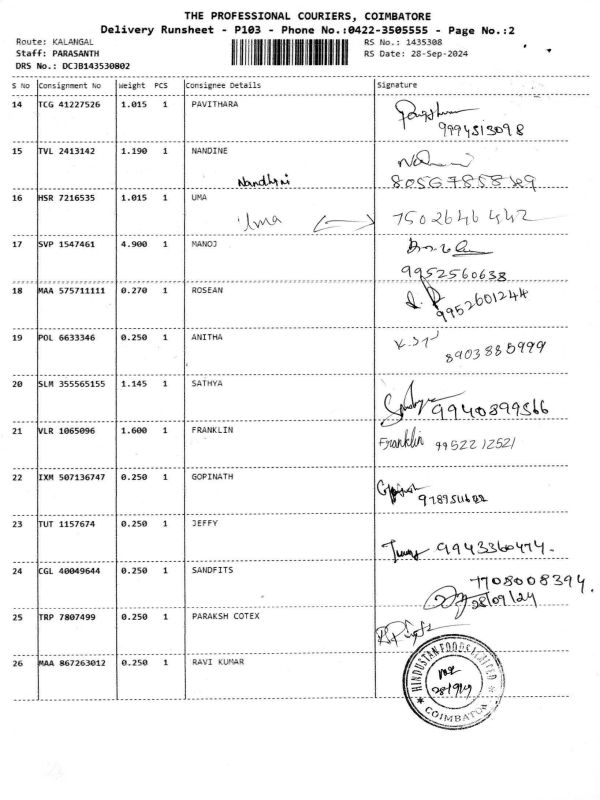 THE PROFESSIONAL COURIERS, COIMBATORE
Delivery Runsheet - P103 - Phone No.:0422-3505555 - Page No.:2
Route: KALANGAL RS No.: 1435308
Staff: PARASANTH RS Date: 28-Sep-2024
DRS No.: DCJB143530802
S No Consignment No Weight PCS Consignee Details Signature
14 TCG 41227526 1.015 1 PAVITHARA
9994513098
15 TVL 2413142 1.190 1 NANDINE
Nandhini
16 HSR 7216535 1.015 1 UMA
Uma 7502646442
17 SVP 1547461 4.900 1 MANOJ
9952560638
18 MAA 575711111 0.270 1 ROSEAN
9952601244
19 POL 6633346 0.250 1 ANITHA
8903885999
20 SLM 355565155 1.145 1 SATHYA
9940899566
21 VLR 1065096 1.600 1 FRANKLIN
Franklin 9952212521
22 IXM 507136747 0.250 1 GOPINATH
Gopinath
23 TUT 1157674 0.250 1 JEFFY
9943360474.
24 CGL 40049644 0.250 1 SANDFITS
7708008394.
28/09/24
25 TRP 7807499 0.250 1 PARAKSH COTEX
26 MAA 867263012 0.250 1 RAVI KUMAR
HINDUSTAN FOODS LIMITED
COIMBATORE